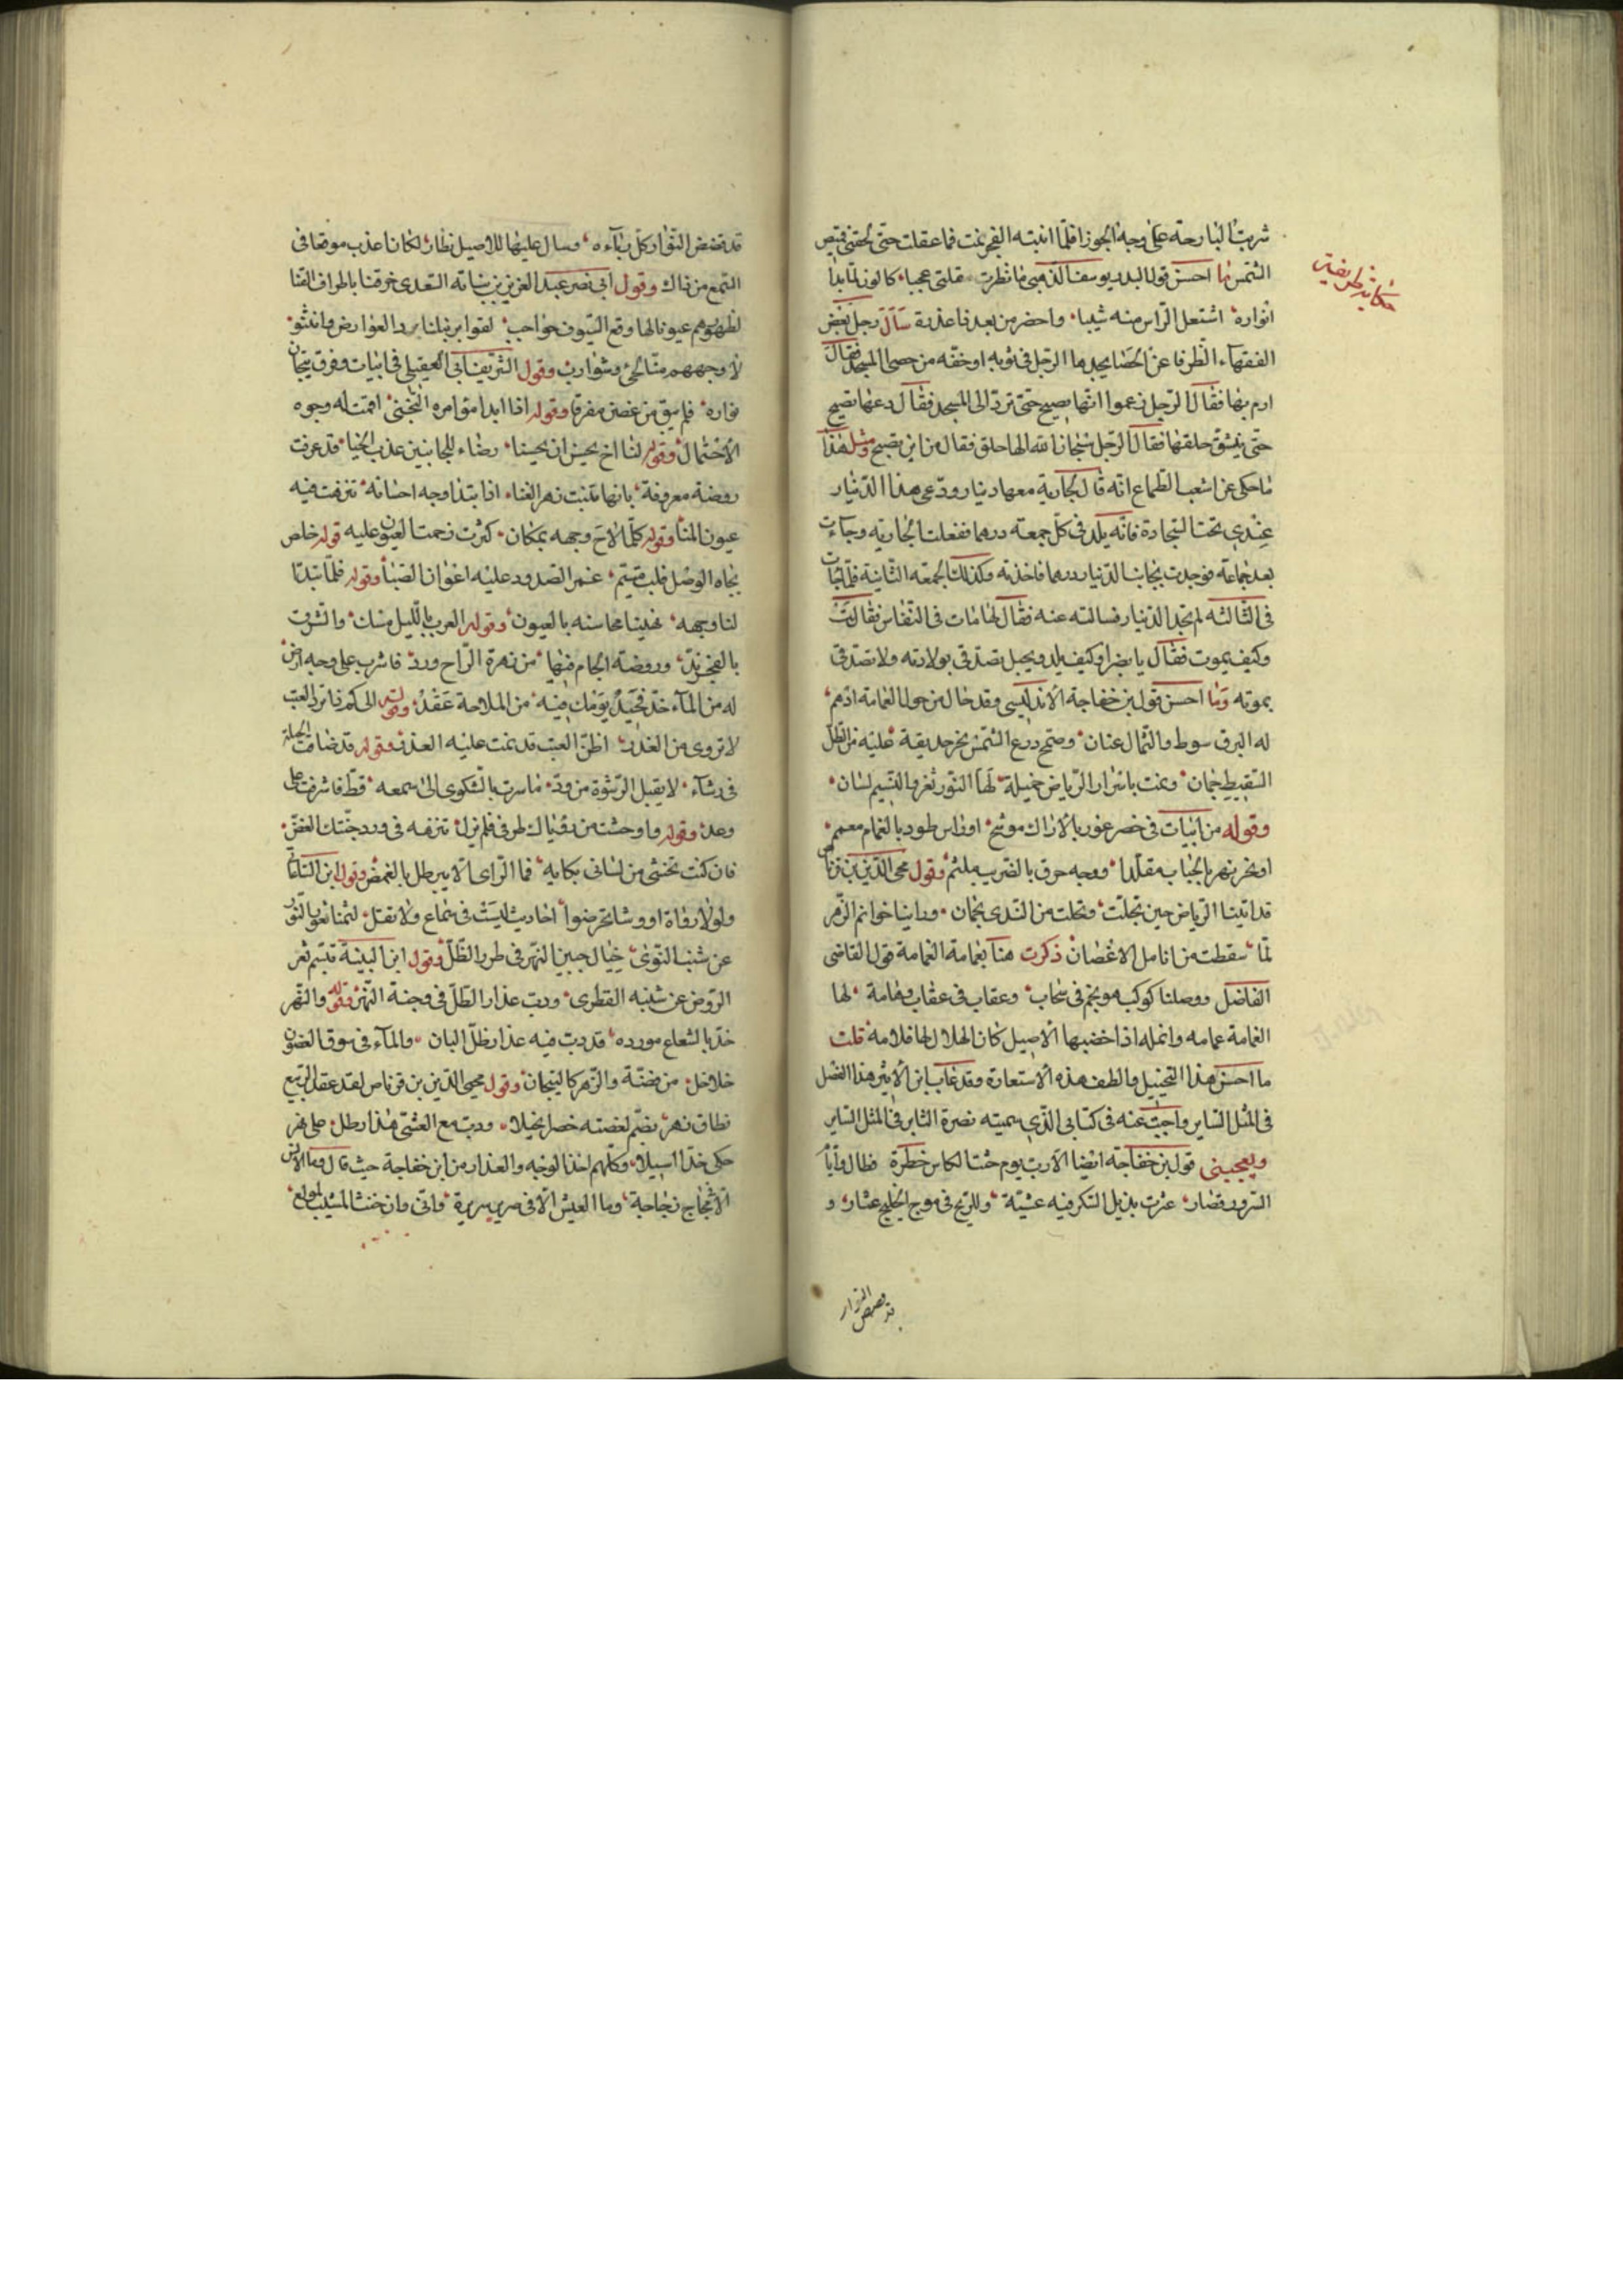 شربت البارحة على وجه الجوزا فلما انتبه الفجر نمت فما عقلت حتى لحقنى قميص
الشمس ما احسن قول البدر يوسف الذهبى ما نظرت مقلتى عجبا كاللوز لما بدا
انواره اشتعل الراس منه شيبا واخضر من بعد ذا عذاره سأل رجل بعض
الفقهاء الظرفا عن الحصا يجدها الرجل فى ثوبه او خفه من حصى المسجد فقال
ارم بها فقال الرجل زعموا انها تصيح حتى ترد الى المسجد فقال دعها تصيح
حتى ينشق حلقها فقال الرجل سبحان الله الها حلق فقال من اين تصيح ومثل هذا
ما حكى عن اشعب الطماع انه قال لجارية معها دينار ودعى هذا الدينار
عندى تحت السجادة فانه يلد فى كل جمعة درهما ففعلت الجارية وجاءت
بعد جماعة فوجدت بجانب الدينار درهما فاخذته وكذلك الجمعة الثانية فلما جات
فى الثالثه لم تجد الدينار فسالته عنه فقال لها مات فى النفاس فقالت
وكيف يموت فقال يا بضرا وكيف يلد ويحبل تصدقى بولادته ولا تصدقى
بموته وما احسن قول بن خفاجة الاندلسى وقد جال من جول الغمامة ادهم
له البرق سوط والشمال عنان وضمخ درع الشمس نحر حديقة عليه من الطل
السقيط جمان ونمت باسرار الرياض خميلة لها النور ثغر والنسيم لسان
وقوله من ابيات فى خصر غور بالاراك موشح او راس طود بالغمام معمم
او نحر نهر بالحباب مقلدا ووجه خرق بالضريب ملثم وقول محى الدين بن قرناص
قد اتينا الرياض حين تجلت وتحلت من الندى بجمان وراينا خواتم الزهر
لما سقطت من انامل الاغصان ذكرت هنا بغمامة الغمامة قول القاضى
الفاضل ووصلنا كوكبه ونجم فى سحاب وعقاب فى عقاب وهامة لها
الغمامة عمامه وانمله اذا خضبها الاصيل كان الهلال لها قلامة قلت
ما احسن هذا التخييل والطف هذه الاستعارة وقد عاب ابن الاثير هذا الفصل
فى المثل الساير واجبت عنه فى كتابى الذى سميته نصرة الثاير فى المثل الساير
ويعجبنى قول بن خفاجة ايضا الا رب يوم حثت الكاس خطرة فطال وايا
السرور قصار عثرت بذيل السكر فيه عشية وللريح فى موج الخليج عثار و
قد فضض النوار
قد فضض النوار كل رباءه وسال عليها للاصيل نضار لكان اعذب موقعا فى
السمع من ذاك وقول ابى نصر عبد العزيز بن نباته السعدى خرقنا باطراف القنا
لظهورهم عيونا لها وقع السيوف حواجب لقوا نبلنا مرد العوارض وانثنو
لاوجههم منا لحى وشوارب وقول الشريف ابى العقيلى فى ابيات وفرق تيجان
نواره فلم يبق من غصن مفرقا وقوله اذا ابدا متوامره التجنى اقمت له وجوه
الاحتمال وقوله لنا اخ يحسن ان يحسنا رضاء للجانيين عذب الجنا قد عرفت
روضة معروفة بانها تنبت زهر الغنا اذا تبدا وجه احسانه تنزهت فيه
عيون المنا وقوله كلما لاح وجهه بمكان كثرت زحمت العيون عليه قوله خلص
بجاه الوصل قلب متيم غمز الصدود عليه اعوان الضنا وقوله فلما تبدا
لنا وجهه نهبنا محاسنه بالعيون وقوله العرب بالليل مسك والشرق
بالفجر ند وروضة الجام فيها من زهرة الراح ورد فاشرب على وجه ارض
له من الماء خد فجيد يومك فيه من الملاحة عقد وقوله الى كم ذا ترد العتب
لا تروى من العذل اظن العتب قد نمت عليه العذل وقوله قد ضاقت الحيلة
فى رشاء لا يقبل الرشوة من ود ما سرت بالشكوى الى سمعه قط فاشرفت على
وعد وقوله واوحشت من رقياك طرفى فلم نزل تنزهه فى ورد جنتك الغض
فان كنت تخشى من لسانى بكايه فما الراى الا يبرطل بالغمض وقول ابن الساعاتى
ولولا رواة او وشا تخرضوا احاديث ليست فى سماع ولا نقل لثمنا ثغور النور
عن شنب النوى خيال جبين النهر فى طرر الظل وقول ابن النبيه تبسم ثغر
الروض عن شنبه القطرى ودب عذار الظل فى وجنة النهر وقوله والنهر
خد بالشعاع مورده قد دب فيه عذار ظل البان والماء فى سوق الغصون
خلاخل من فضة والزهر كالتيجان وقول محيى الدين بن قرناص لقد عقد الربيع
نطاق نهر يضم لغصنه خصرا نحيلا ودب مع العشى عذار طل على نهر
حكى خدا اسيلا وكلهم اخذ الوجه والعذار من ابن خفاجة حيث قال وما الانس
الا فى مجاج زجاجة وما العيش الا فى صرير سريرة وانى وان خنت المشيب لمولع